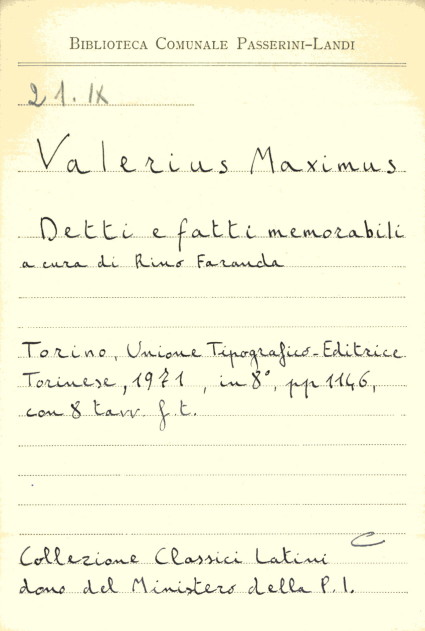 BIBLIOTECA COMUNALE PASSERINI-LANDI
21. IX
Valerius Maximus
Detti e fatti memorabili
a cura di Rino Faranda
Torino, Unione Tipografico-Editrice
Torinese, 1971, in 8°, pp 1146,
con 8 tavv. f.t.
C
Collezione Classici Latini
dono del Ministero della P.I.